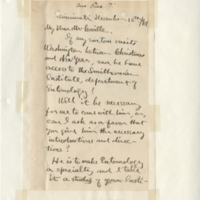 Cincinnati December 12th/81
My Dear Mr Coville
If my nephew visits
Washington between Christmas
and New Year, can he have
access to the Smithsonian
Institute, department of
Entomology?
Will it be necessary
for me to come with him, or
can I ask as a favor that
you give him the necessary
introductions and direc-
tions?
He is to make Entomology
a specialty, and I take
it a study of your Insti-